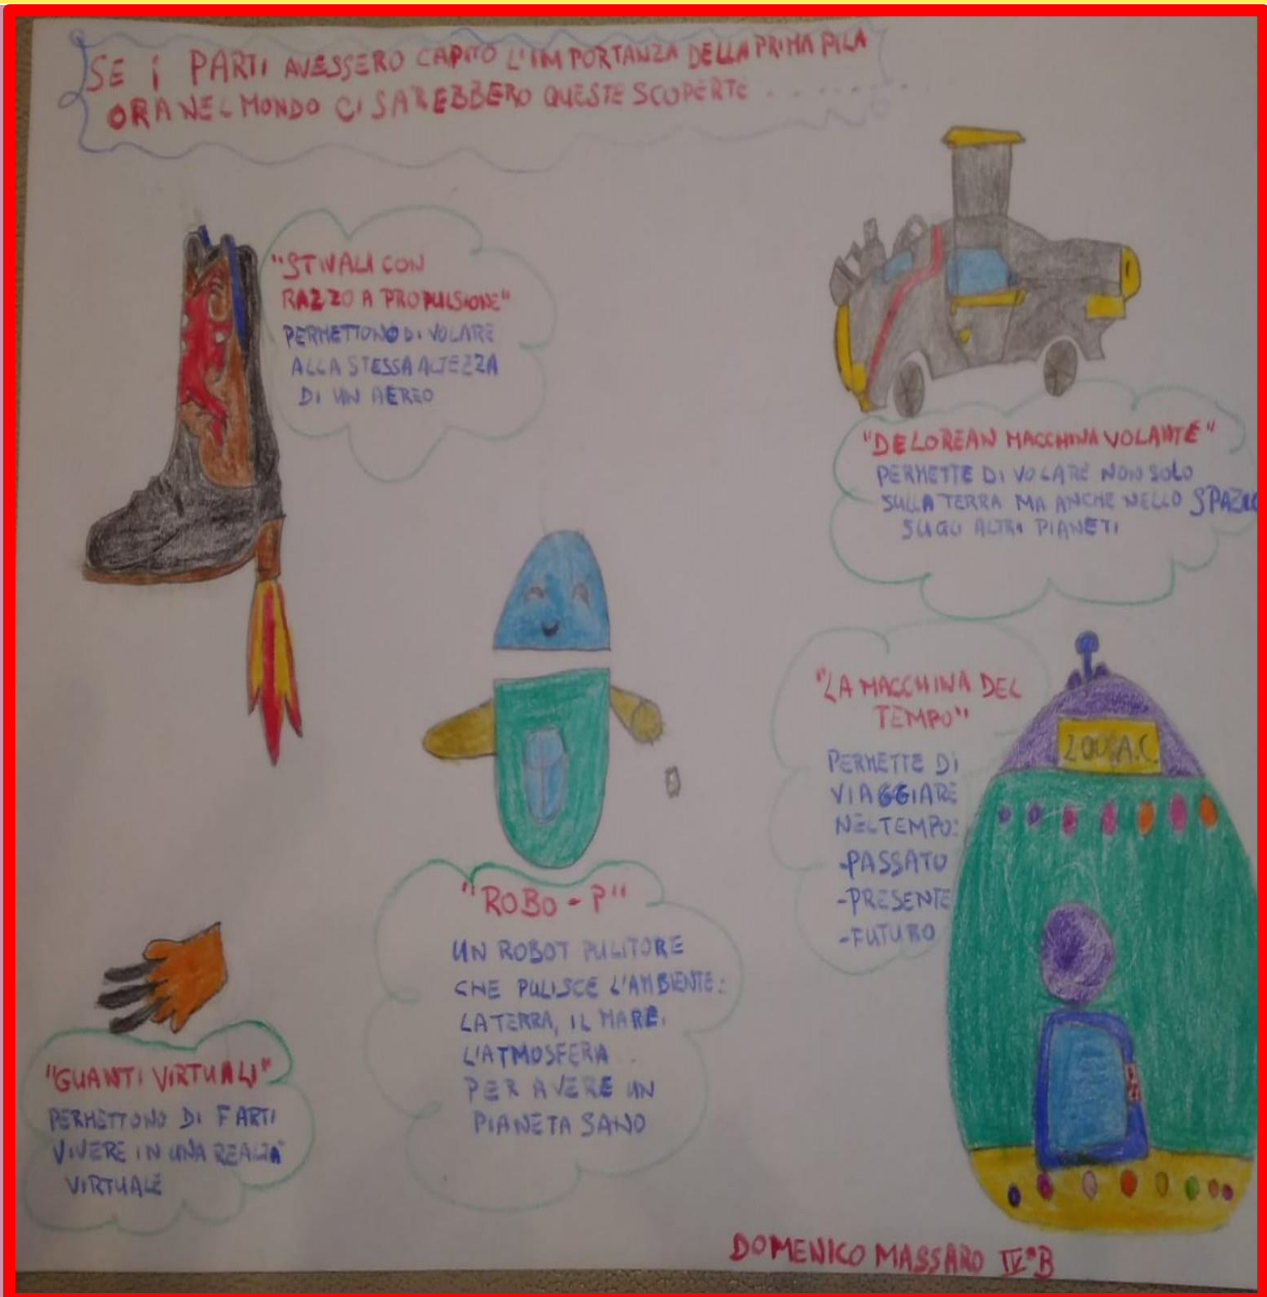 SE i PARTI AVESSERO CAPITO L'IMPORTANZA DELLA PRIMA PILA
ORA NEL MONDO CI SAREBBERO QUESTE SCOPERTE . . . . . . . .
"STIVALI CON
RAZZO A PROPULSIONE"
PERMETTONO DI VOLARE
ALLA STESSA ALTEZZA
DI UN AEREO
"DELOREAN MACCHINA VOLANTE"
PERMETTE DI VOLARE NON SOLO
SULLA TERRA MA ANCHE NELLO SPAZIO
SUGLI ALTRI PIANETI
"LA MACCHINA DEL
TEMPO"
PERMETTE DI
VIAGGIARE
NEL TEMPO:
-PASSATO
-PRESENTE
-FUTURO
A.C.
"ROBO - P"
UN ROBOT PULITORE
CHE PULISCE L'AMBIENTE:
LA TERRA, IL MARE,
L'ATMOSFERA
PER AVERE UN
PIANETA SANO
"GUANTI VIRTUALI"
PERMETTONO DI FARTI
VIVERE IN UNA REALTÀ
VIRTUALE
DOMENICO MASSARO IV°B